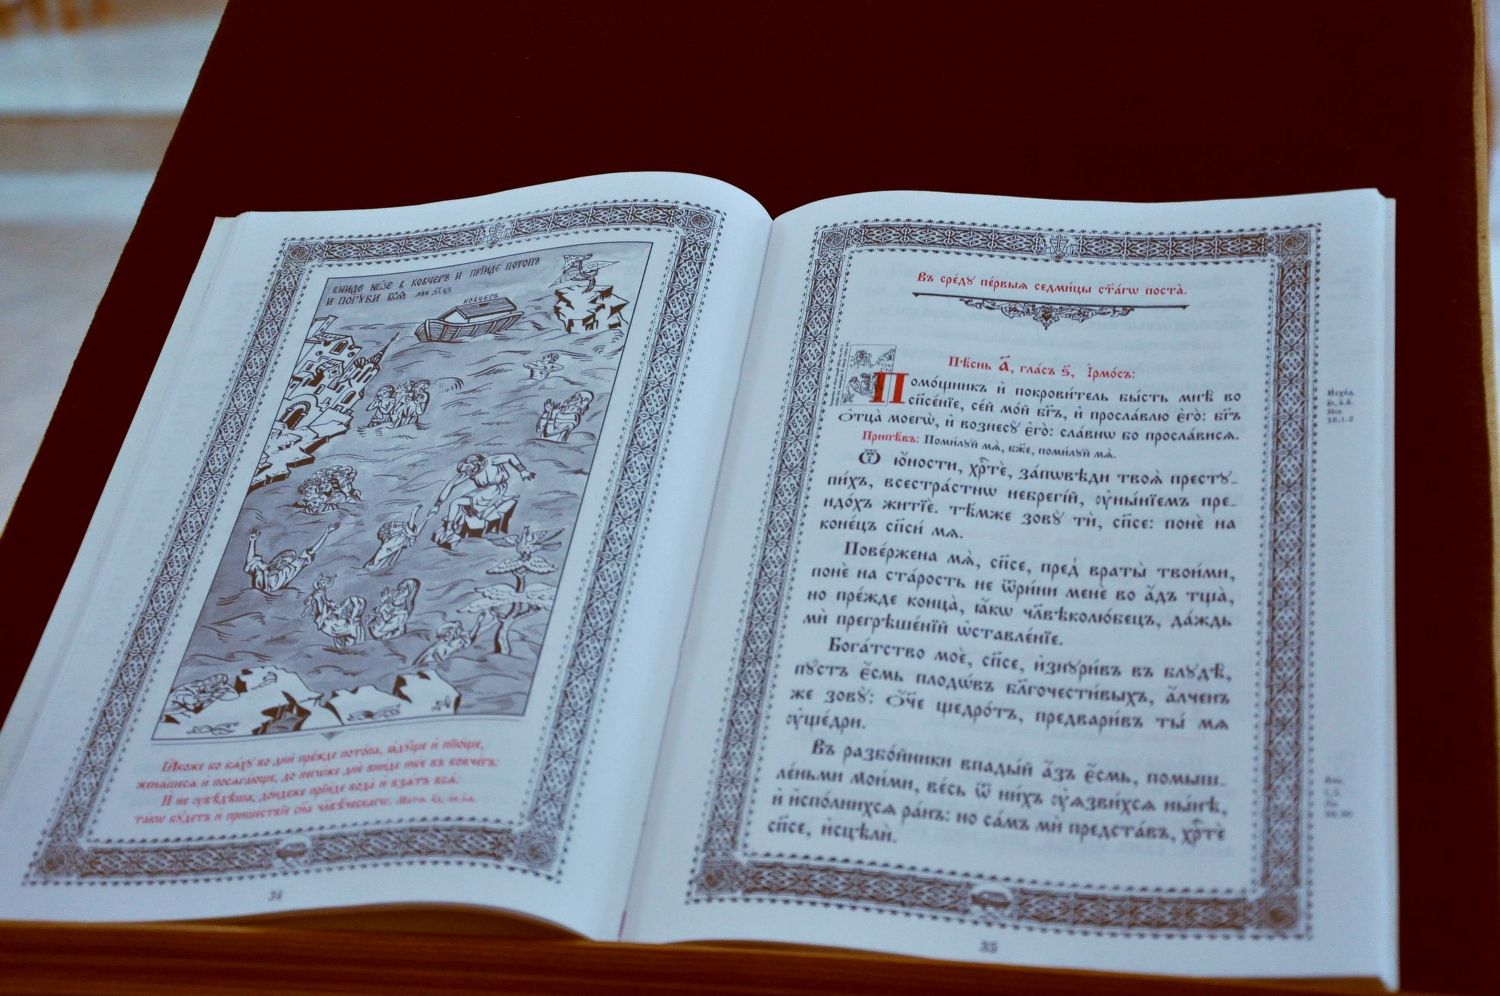 ВНИДЕ НѠЕ В КОВЧЕГЪ И ПРЇИДЕ ПОТОПЪ
И ПОГУБИ ВСѦ
КОВЧЕГЪ
Ꙗ҆́коже бо бѧ́хꙋ во дни̑ пре́жде пото́па, ꙗ҆дꙋ́ще и҆ пїю́ще,
женѧ́щесѧ и҆ посѧга́юще, до негѡ́же днѐ вни́де нѡ́е въ ковче́гъ:
И҆ не ᲂу҆вѣ́дѣша, до́ндеже прїи́де вода̀ и҆ взѧ́тъ всѧ̑:
та́кѡ бꙋ́детъ и҆ прише́ствїе сн҃а чл҃вѣ́ческагѡ.
34
Въ сре́дꙋ пе́рвыѧ седми́цы ст҃а́гѡ поста̀.
Пѣ́снь а҃, гла́съ ѕ҃, І҆рмо́съ:
Помо́щникъ и҆ покрови́тель бы́сть мнѣ̀ во
сп҃се́нїе, се́й мо́й бг҃ъ, и҆ просла́влю є҆го̀: бг҃ъ
Ѻ҆тца̀ моегѡ̀, и҆ вознесꙋ̀ є҆го̀: сла́внѡ бо просла́висѧ.
Припѣ́въ: Поми́лꙋй мѧ̀, бж҃е, поми́лꙋй мѧ̀.
Ѿ ю҆́ности, хрⷭ҇тѐ, за́пѡвѣди твоѧ̑ престꙋ-
пи́хъ, всестра́стнѡ небрегі́й, ᲂу҆ны́нїемъ пре-
идо́хъ житїѐ. тѣ́мже зовꙋ́ ти, сп҃се: понѐ на
коне́цъ сп҃си́ мѧ.
Пове́ржена мѧ̀, сп҃се, пред̾ враты̀ твои́ми,
понѐ на ста́рость не ѿри́ни менѐ во а҆́дъ тща̀,
но пре́жде конца̀, ꙗ҆́кѡ чл҃вѣколю́бецъ, да́ждь
мѝ прегрѣше́нїй ѡ҆ставле́нїе.
Бога́тство моѐ, сп҃се, и҆знꙋри́въ въ блꙋдѣ̀,
пꙋ́стъ є҆́смь плодѡ́въ бл҃гочести́выхъ, а҆́лченъ
же зовꙋ̀: Ѻ҆́ч҃е щедро́тъ, предвари́въ ты́ мѧ
ᲂу҆ще́дри.
Въ разбо́йники впады́й а҆́зъ є҆́смь, помыш-
ле́ньми мои́ми, ве́сь ѿ ни́хъ ᲂу҆ѧзви́хсѧ ны́нѣ,
и҆ и҆спо́лнихсѧ ра́нъ: но са́мъ мѝ предста́въ, хрⷭ҇тѐ
сп҃се, и҆сцѣлѝ.
35